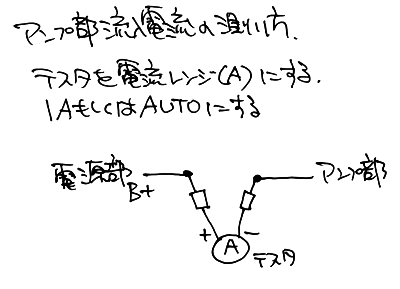 アンプ部流入電流の測り方.
テスタを電流レンジ(A)にする.
1AもしくはAUTOにする
電源部 B+
アンプ部
+ A −
テスタ